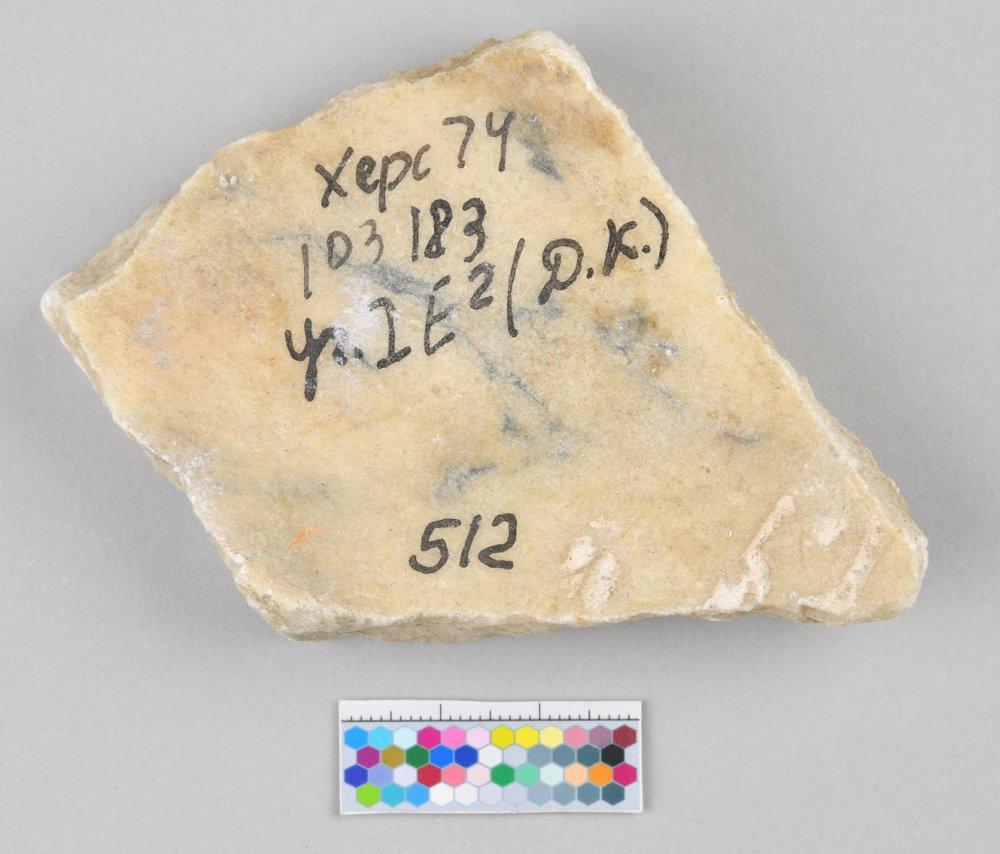 Херс 74
103 183
ул. I E² (Д.К.)
512